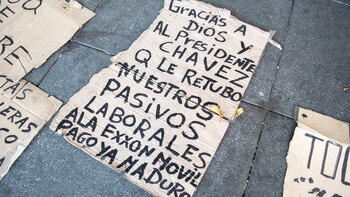 GRACIAS A
DIOS Y
AL PRESIDENTE
CHAVEZ
Q LE RETUBO
NUESTROS
PASIVOS
LABORALES
A LA EXXON MOVIL
PAGO YA MADURO
RE
ERAS
CO
A
TOD